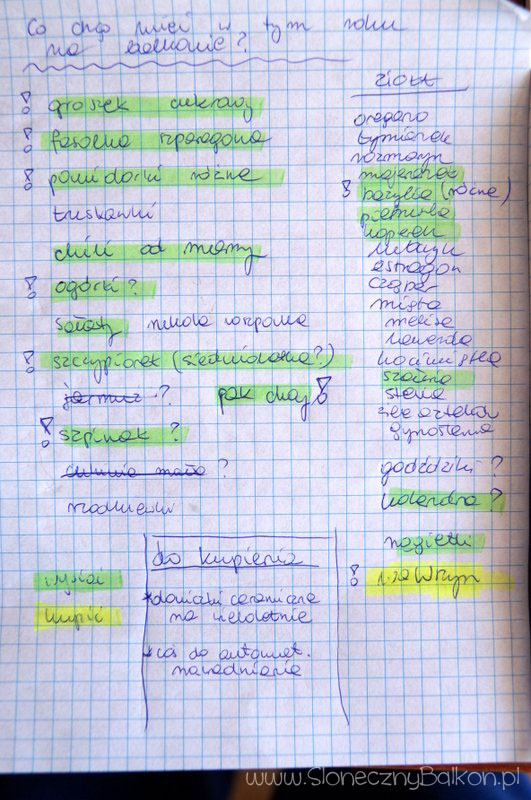 Co chcę mieć w tym roku
na balkonie?
! groszek cukrowy
! fasolka szparagowa
! pomidorki różne
truskawki
chili od mamy
! ogórki?
sałaty rukola roszponka
! szczypiorek (siedmiolatka?)
jarmuż? pak choy!
! szpinak?
cukinia mała?
rzodkiewki
zioła
oregano
tymianek
rozmaryn
majeranek
! bazylia (różne)
pietruszka
koperek
lubczyk
estragon
cząber
mięta
melisa
lawenda
kocimiętka
szałwia
stewia
zioło azteków
gynostemma
goździki?
kolendra?
nagietki
! wawrzyn
wysiać
kupić
do kupienia
* doniczki ceramiczne
na wieloletnie
* coś do automat.
nawadniania
www.SłonecznyBalkon.pl